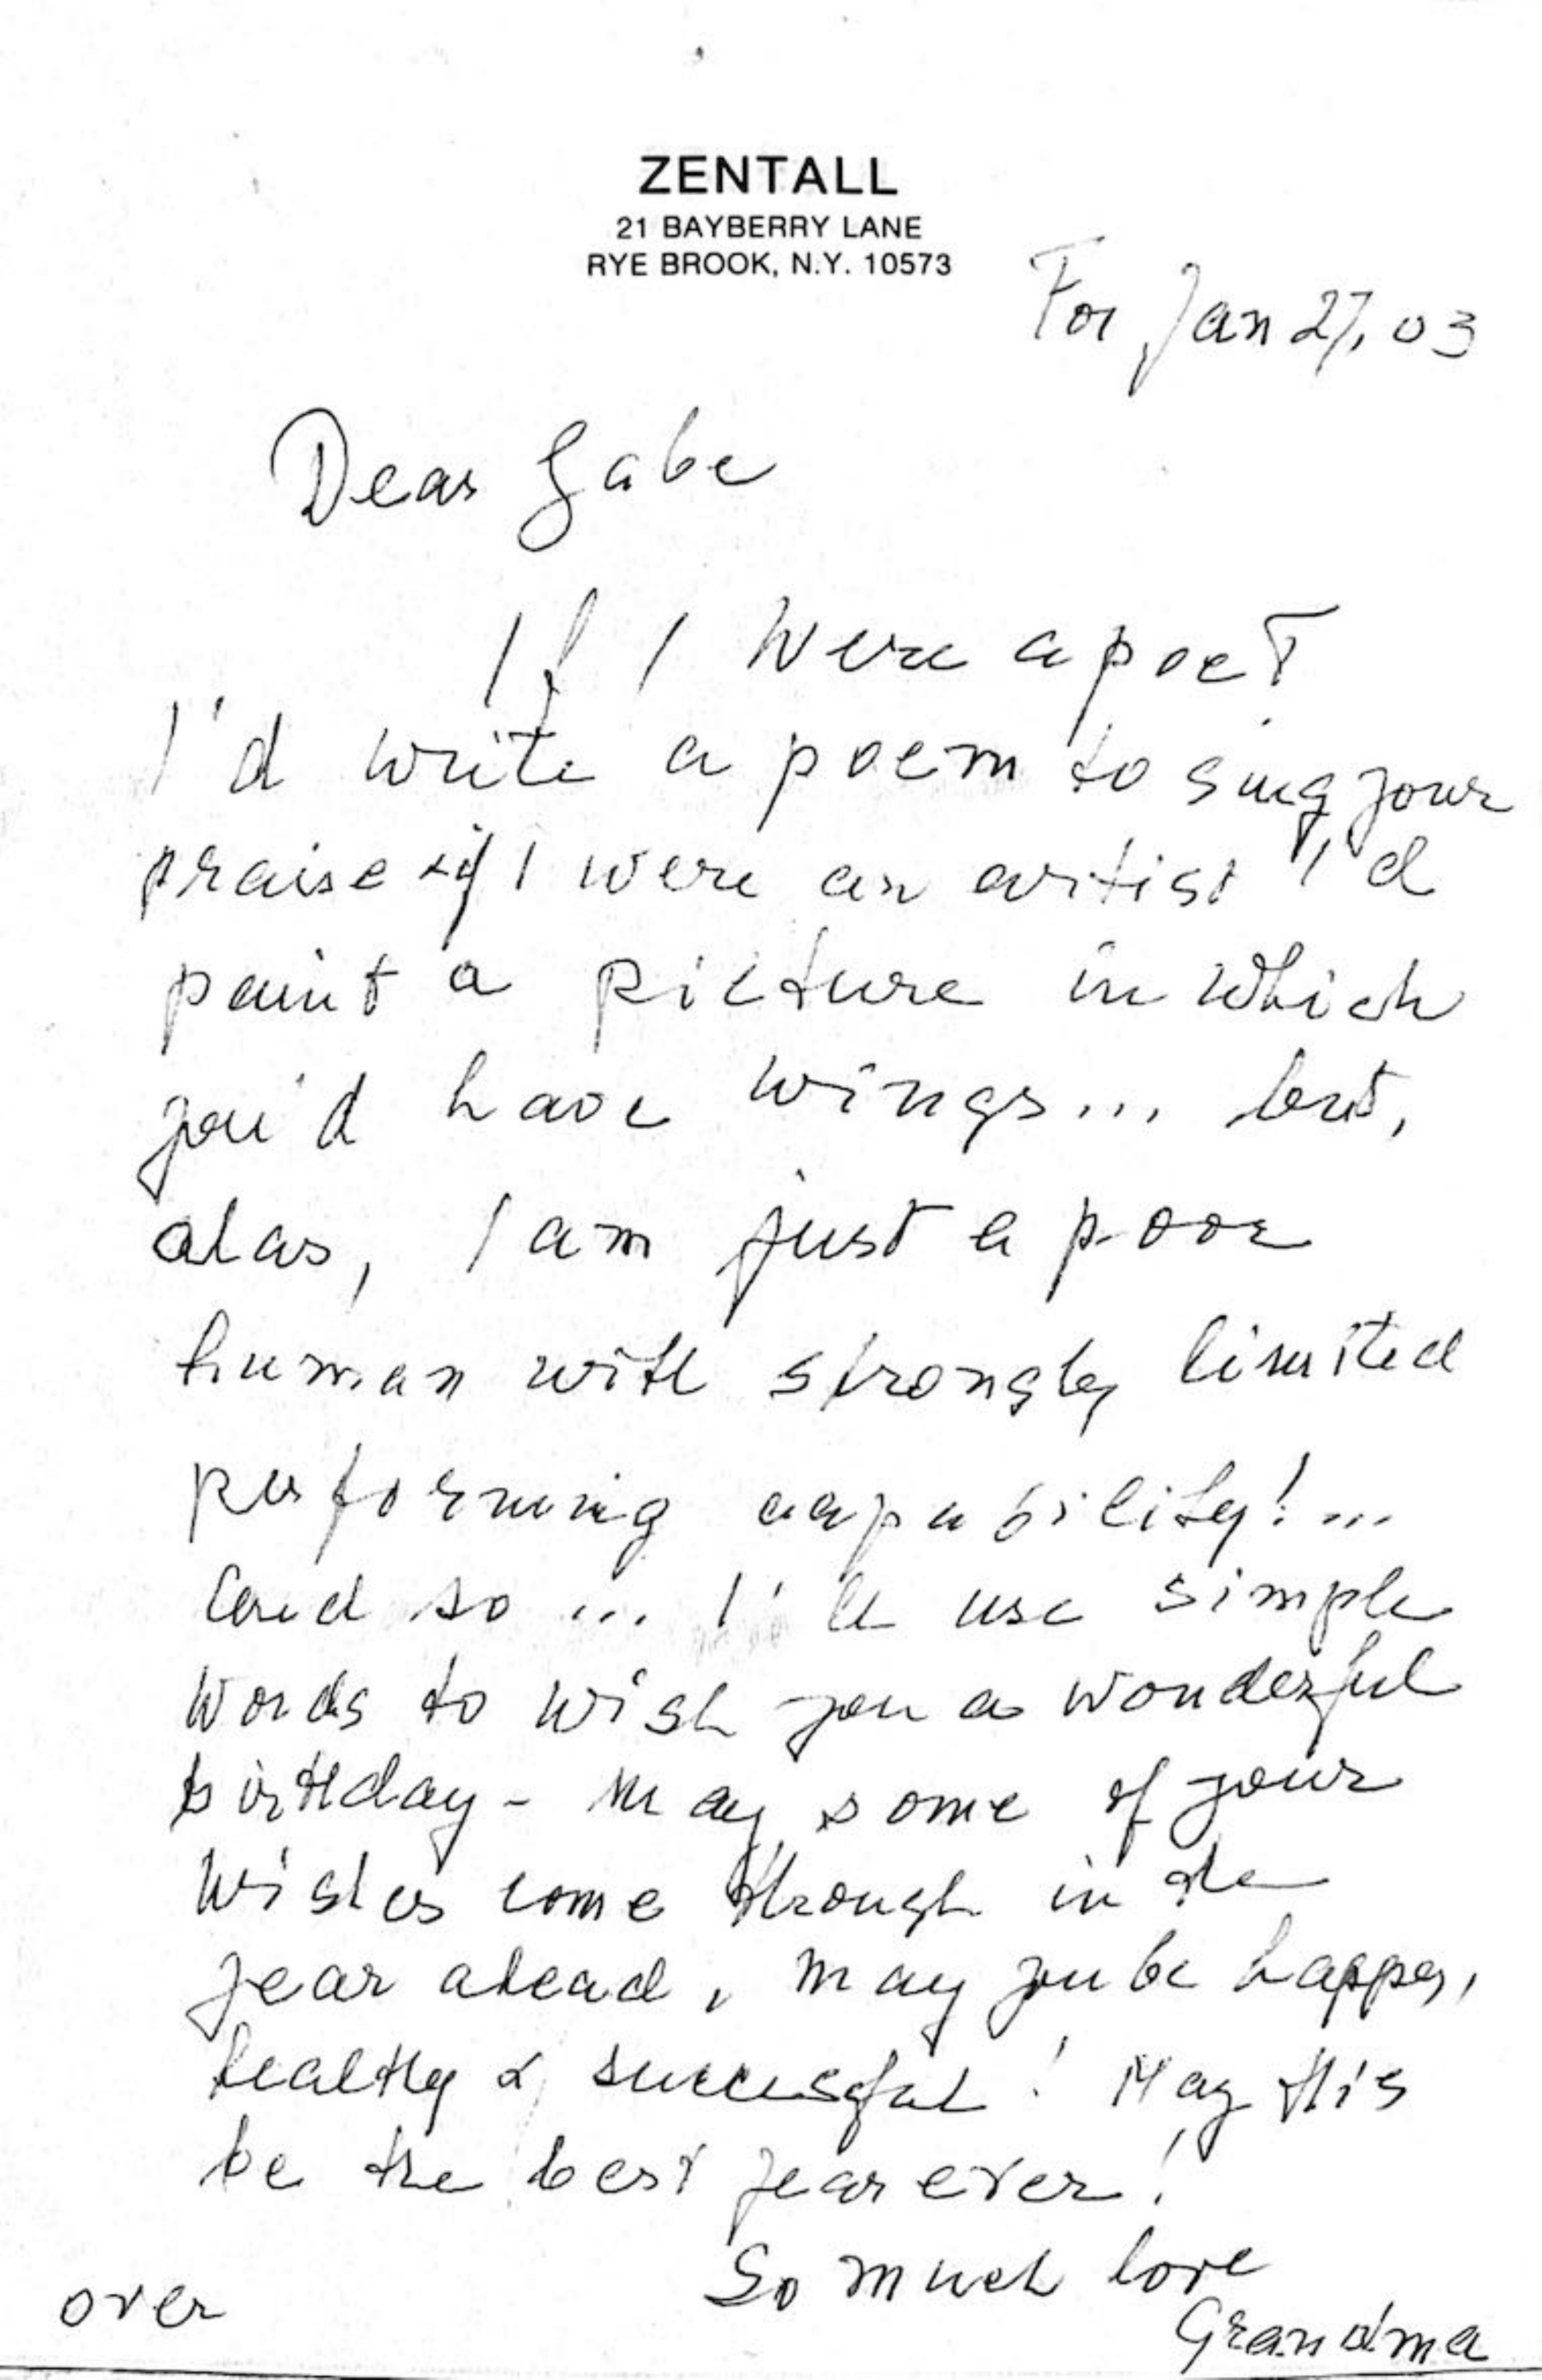 ZENTALL
21 BAYBERRY LANE
RYE BROOK, N.Y. 10573
For Jan 27, 03
Dear Gabe
If I were a poet
I'd write a poem to sing your
praise & if I were an artist I'd
paint a picture in which
you'd have wings... but,
alas, I am just a poor
human with strongly limited
performing capability!...
And so ... I'll use simple
words to wish you a wonderful
birthday - may some of your
wishes come through in the
year ahead, may you be happy,
healthy & successful! May this
be the best year ever!
So much love
Grandma
over